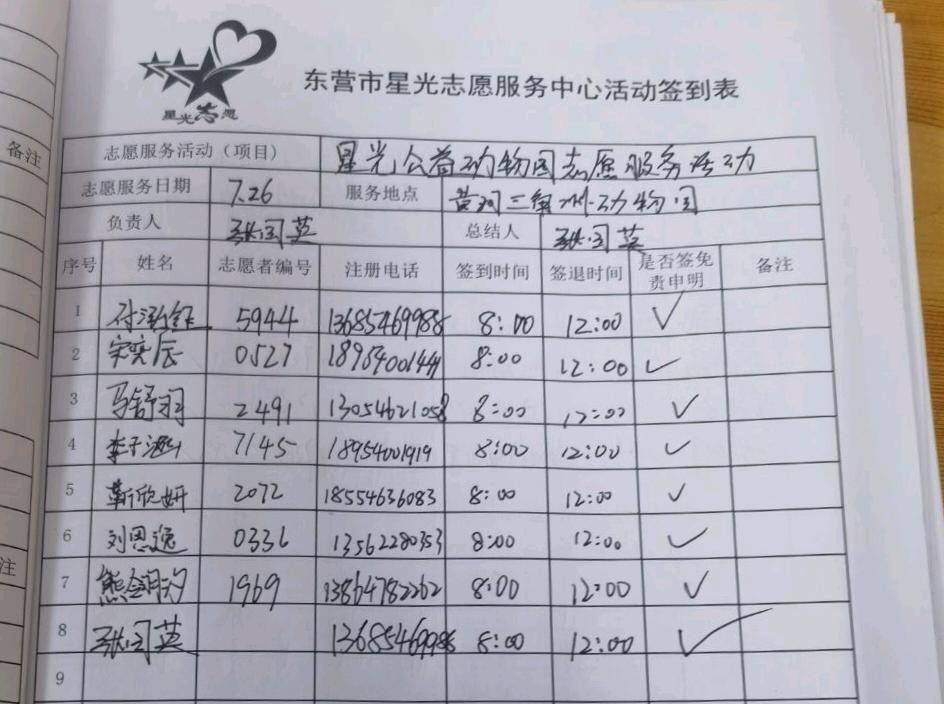 星光志愿
东营市星光志愿服务中心活动签到表
备注
志愿服务活动（项目） 星光公益动物园志愿服务活动
志愿服务日期 7.26 服务地点 黄河三角洲动物园
负责人 张闰英 总结人 张闰英
序号 姓名 志愿者编号 注册电话 签到时间 签退时间 是否签免责申明 备注
1 5944 13685469988 8:00 12:00 ✓
2 宋奕辰 0527 8:00 12:00 ✓
3 马舒羽 2491 13054621058 8:00 12:00 ✓
4 7145 18954001919 8:00 12:00 ✓
5 靳欣妍 2072 18554636083 8:00 12:00 ✓
6 刘恩逸 0336 13562280353 8:00 12:00 ✓
7 1969 13864782262 8:00 12:00 ✓
8 张闰英 13685469988 8:00 12:00 ✓
9
注